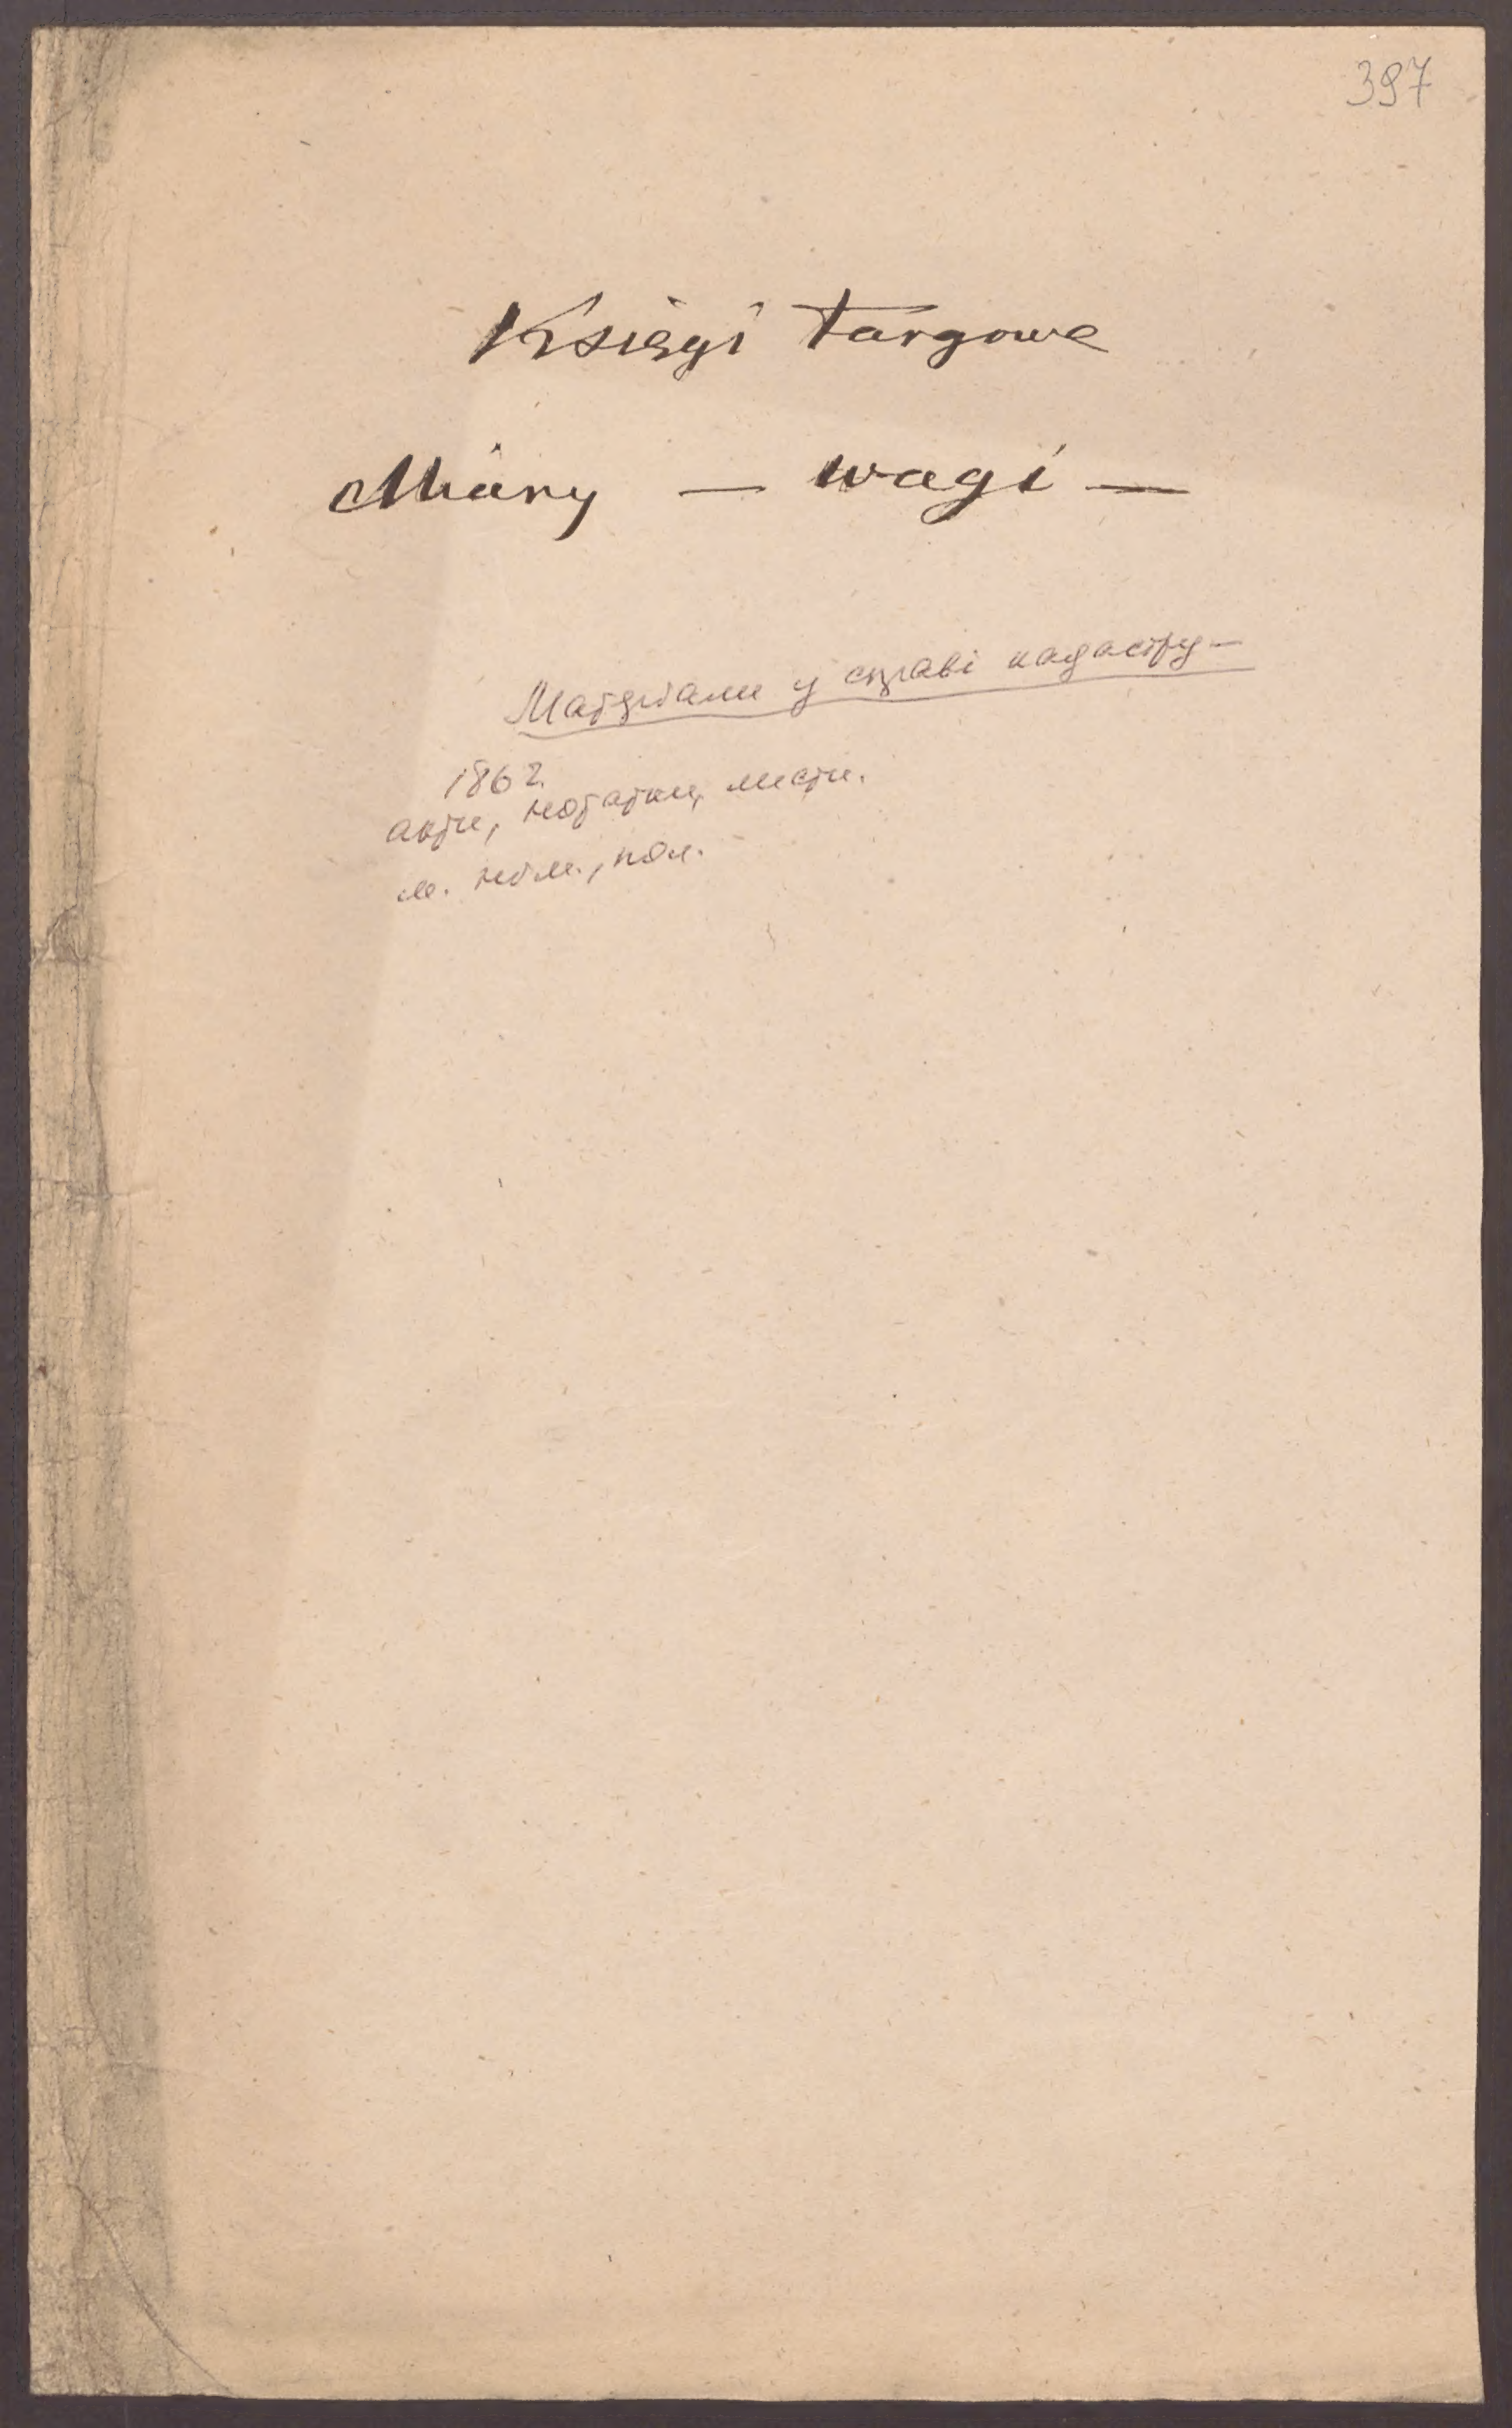 397
Księgi targowe
Miary — wagi —
Матеріали у справі кадастру —
1862.
акти, нотатки, листи.
м. нім., пол.